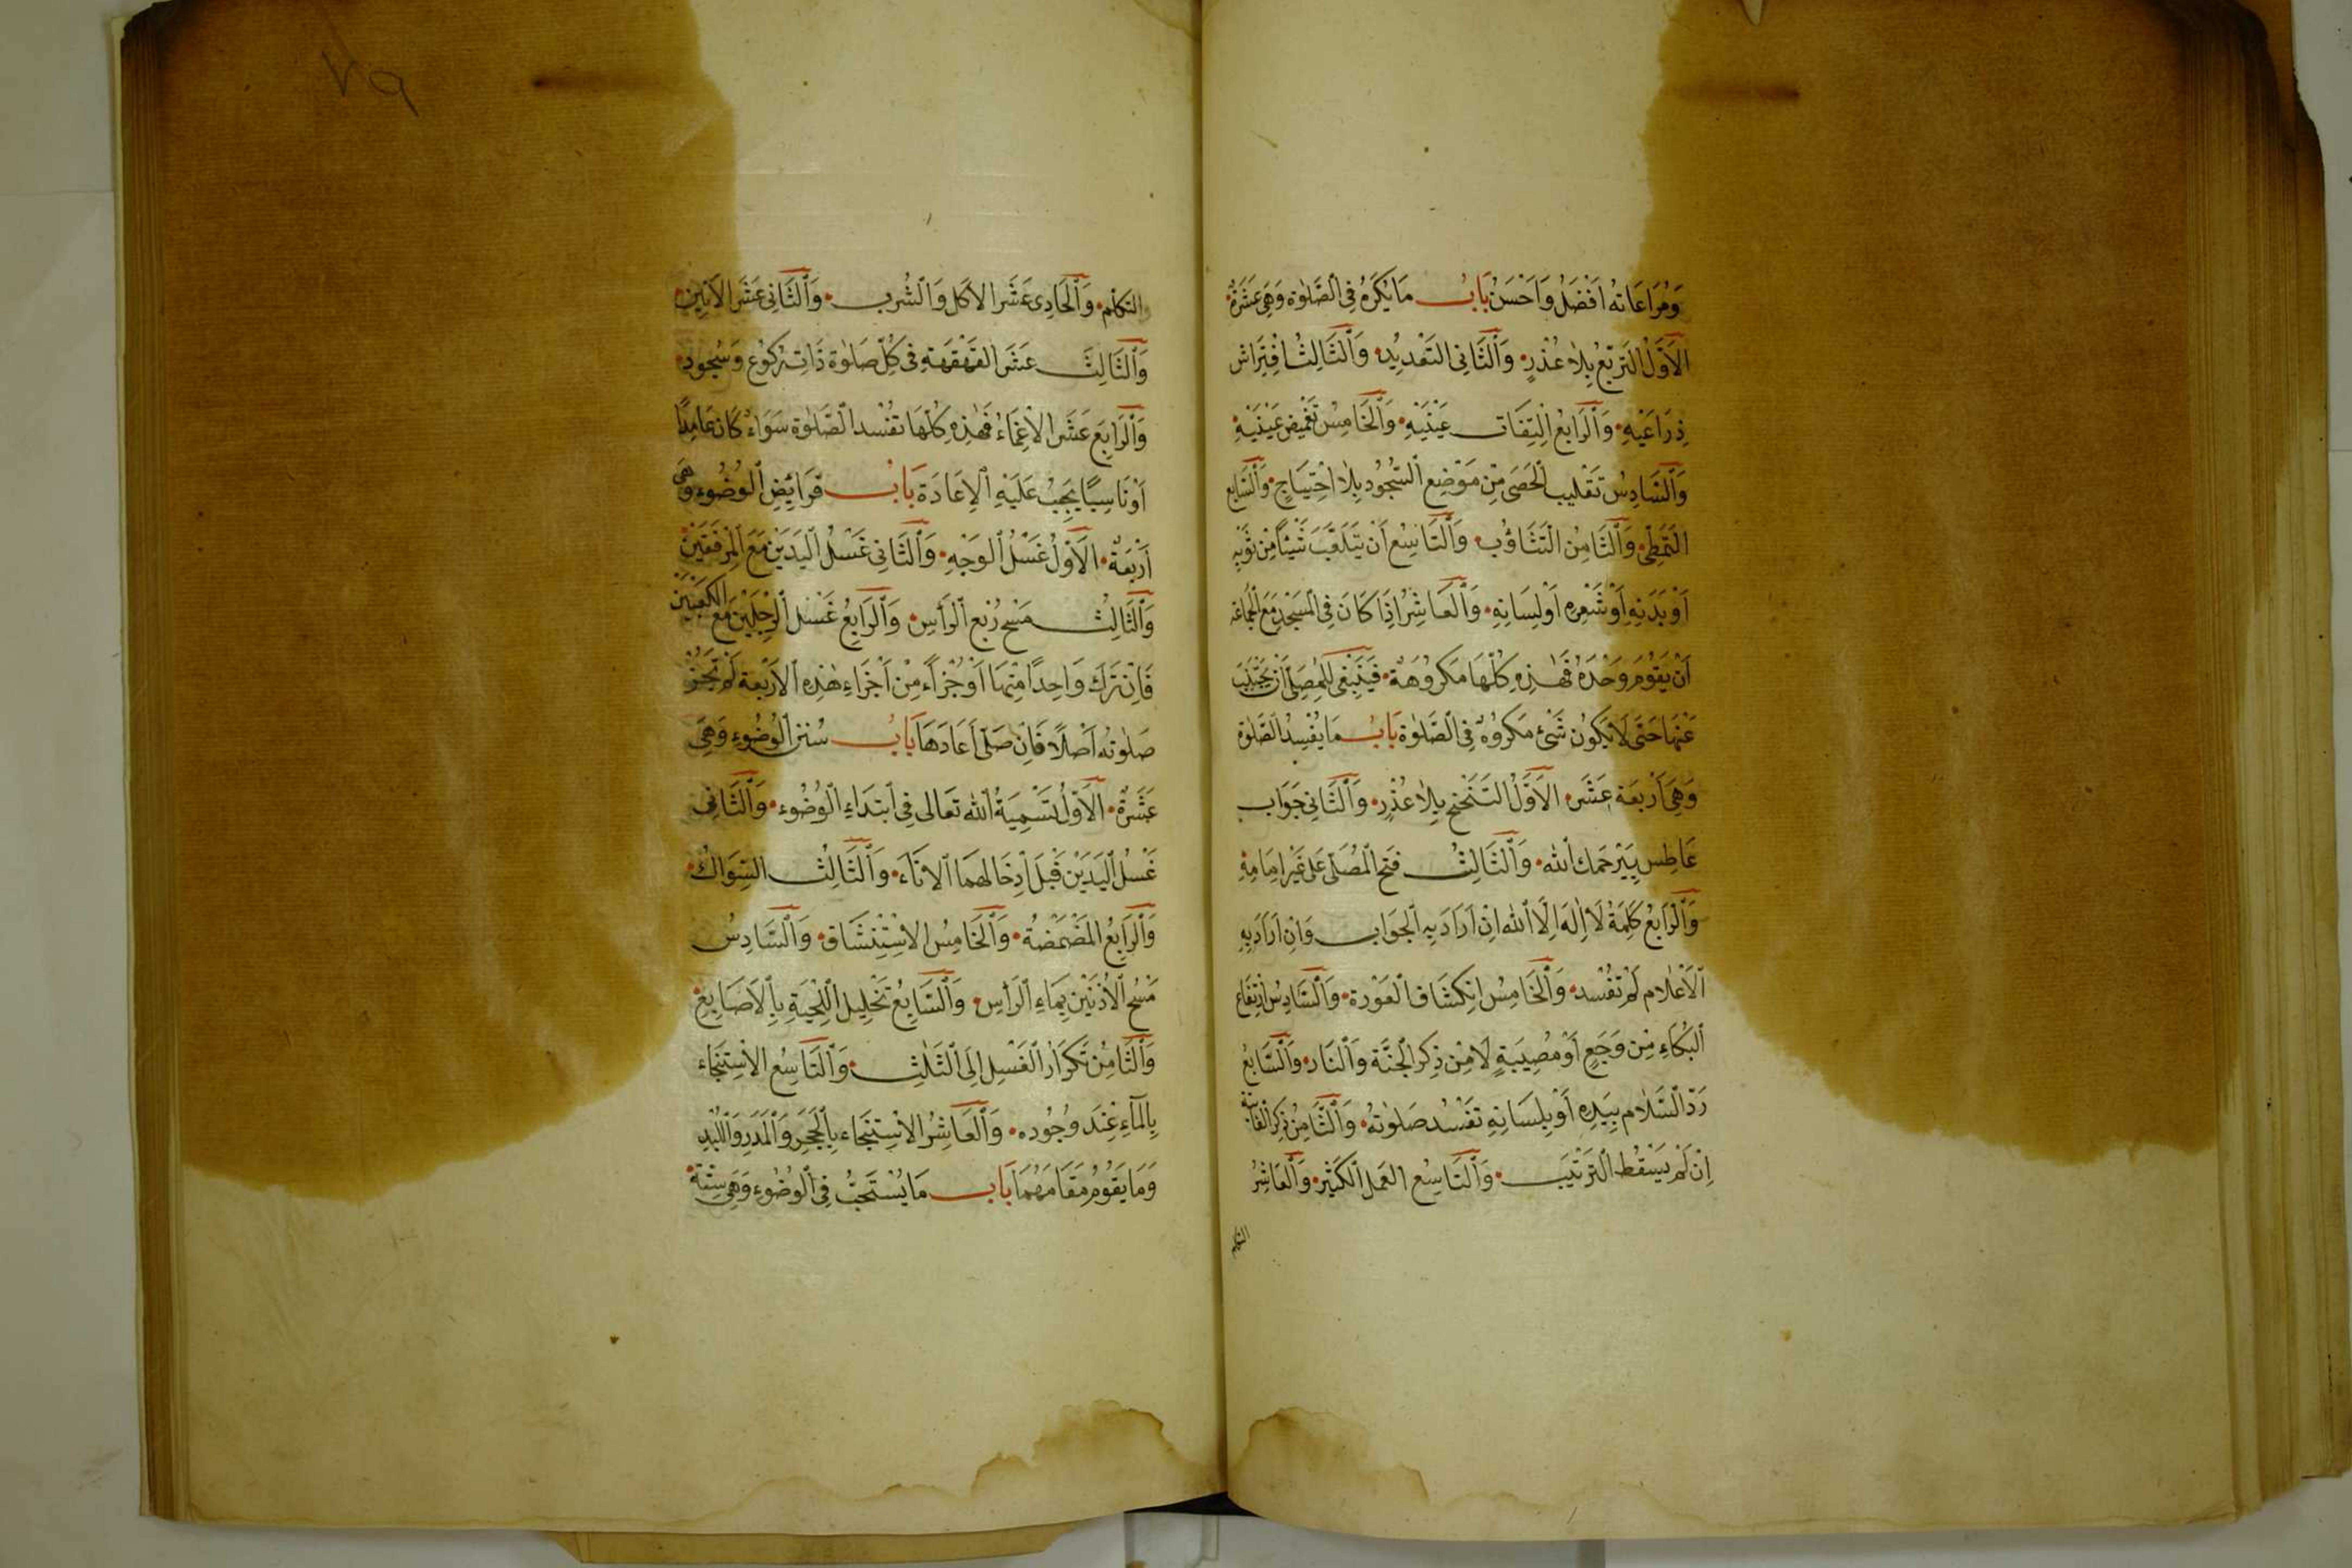 وَمُرَاعَاتُهُ اَفْضَلُ وَاَحْسَنُ بَابُ مَا يُكْرَهُ فِي الصَّلٰوةِ وَهِيَ عَشَرَةٌ
الْاَوَّلُ التَّرَبُّعُ بِلَا عُذْرٍ وَالثَّانِي التَّعْدِيدُ وَالثَّالِثُ افْتِرَاشُ
ذِرَاعَيْهِ وَالرَّابِعُ اِلْتِفَاتُ عَيْنَيْهِ وَالْخَامِسُ تَغْمِيضُ عَيْنَيْهِ
وَالسَّادِسُ تَقْلِيبُ الْحَصَى مِنْ مَوْضِعِ السُّجُودِ بِلَا احْتِيَاجٍ وَالسَّابِعُ
التَّمَطِّي وَالثَّامِنُ التَّثَاؤُبُ وَالتَّاسِعُ اَنْ يَتَلَعَّبَ شَيْئًا مِنْ ثَوْبِهِ
اَوْ بَدَنِهِ اَوْ شَعْرِهِ اَوْ لِسَانِهِ وَالْعَاشِرُ اِذَا كَانَ فِي الْمَسْجِدِ مَعَ الْجَمَاعَةِ
اَنْ يَقُومَ وَحْدَهُ فَهٰذِهِ كُلُّهَا مَكْرُوهَةٌ فَيَنْبَغِي لِلْمُصَلِّي اَنْ يَجْتَنِبَ
عَنْهَا حَتَّى لَا يَكُونَ شَيْءٌ مَكْرُوهٌ فِي الصَّلٰوةِ بَابُ مَا يُفْسِدُ الصَّلٰوةَ
وَهِيَ اَرْبَعَةَ عَشَرَ الْاَوَّلُ التَّنَحْنُحُ بِلَا عُذْرٍ وَالثَّانِي جَوَابُ
عَاطِسٍ بِيَرْحَمُكَ اللّٰهُ وَالثَّالِثُ فَتْحُ الْمُصَلِّي عَلَى غَيْرِ اِمَامِهِ
وَالرَّابِعُ كَلِمَةُ لَا اِلٰهَ اِلَّا اللّٰهُ اِنْ اَرَادَ بِهِ الْجَوَابَ وَاِنْ اَرَادَ بِهِ
الْاِعْلَامَ لَمْ تَفْسُدْ وَالْخَامِسُ اِنْكِشَافُ الْعَوْرَةِ وَالسَّادِسُ ارْتِفَاعُ
الْبُكَاءِ مِنْ وَجَعٍ اَوْ مُصِيبَةٍ لَا مِنْ ذِكْرِ الْجَنَّةِ وَالنَّارِ وَالسَّابِعُ
رَدُّ السَّلَامِ بِيَدِهِ اَوْ بِلِسَانِهِ تَفْسُدُ صَلٰوتُهُ وَالثَّامِنُ ذِكْرُ الْفَائِتَةِ
اِنْ لَمْ يَسْقُطِ التَّرْتِيبُ وَالتَّاسِعُ الْعَمَلُ الْكَثِيرُ وَالْعَاشِرُ
التكلم
٧٩
التَّكَلُّمُ وَالْحَادِي عَشَرَ الْاَكْلُ وَالشُّرْبُ وَالثَّانِي عَشَرَ الْاَنِينُ
وَالثَّالِثَ عَشَرَ الْقَهْقَهَةُ فِي كُلِّ صَلٰوةٍ ذَاتِ رُكُوعٍ وَسُجُودٍ
وَالرَّابِعَ عَشَرَ الْاِغْمَاءُ فَهٰذِهِ كُلُّهَا تُفْسِدُ الصَّلٰوةَ سَوَاءٌ كَانَ عَامِدًا
اَوْ نَاسِيًا يَجِبُ عَلَيْهِ الْاِعَادَةُ بَابُ فَرَائِضِ الْوُضُوءِ وَهِيَ
اَرْبَعَةٌ الْاَوَّلُ غَسْلُ الْوَجْهِ وَالثَّانِي غَسْلُ الْيَدَيْنِ مَعَ الْمِرْفَقَيْنِ
وَالثَّالِثُ مَسْحُ رُبْعِ الرَّأْسِ وَالرَّابِعُ غَسْلُ الرِّجْلَيْنِ مَعَ الْكَعْبَيْنِ
فَاِنْ تَرَكَ وَاحِدًا مِنْهَا اَوْ جُزْأً مِنْ اَجْزَاءِ هٰذِهِ الْاَرْبَعَةِ لَمْ تَجُزْ
صَلٰوتُهُ اَصْلًا فَاِنْ صَلَّى اَعَادَهَا بَابُ سُنَنِ الْوُضُوءِ وَهِيَ
عَشَرَةٌ الْاَوَّلُ تَسْمِيَةُ اللّٰهِ تَعَالَى فِي ابْتِدَاءِ الْوُضُوءِ وَالثَّانِي
غَسْلُ الْيَدَيْنِ قَبْلَ اِدْخَالِهِمَا الْاِنَاءَ وَالثَّالِثُ السِّوَاكُ
وَالرَّابِعُ الْمَضْمَضَةُ وَالْخَامِسُ الْاِسْتِنْشَاقُ وَالسَّادِسُ
مَسْحُ الْاُذُنَيْنِ بِمَاءِ الرَّأْسِ وَالسَّابِعُ تَخْلِيلُ اللِّحْيَةِ بِالْاَصَابِعِ
وَالثَّامِنُ تَكْرَارُ الْغَسْلِ اِلَى الثَّلٰثِ وَالتَّاسِعُ الْاِسْتِنْجَاءُ
بِالْمَاءِ عِنْدَ وُجُودِهِ وَالْعَاشِرُ الْاِسْتِنْجَاءُ بِالْحَجَرِ وَالْمَدَرِ وَاللِّبْدِ
وَمَا يَقُومُ مَقَامَهُمَا بَابُ مَا يُسْتَحَبُّ فِي الْوُضُوءِ وَهِيَ سِتَّةٌ